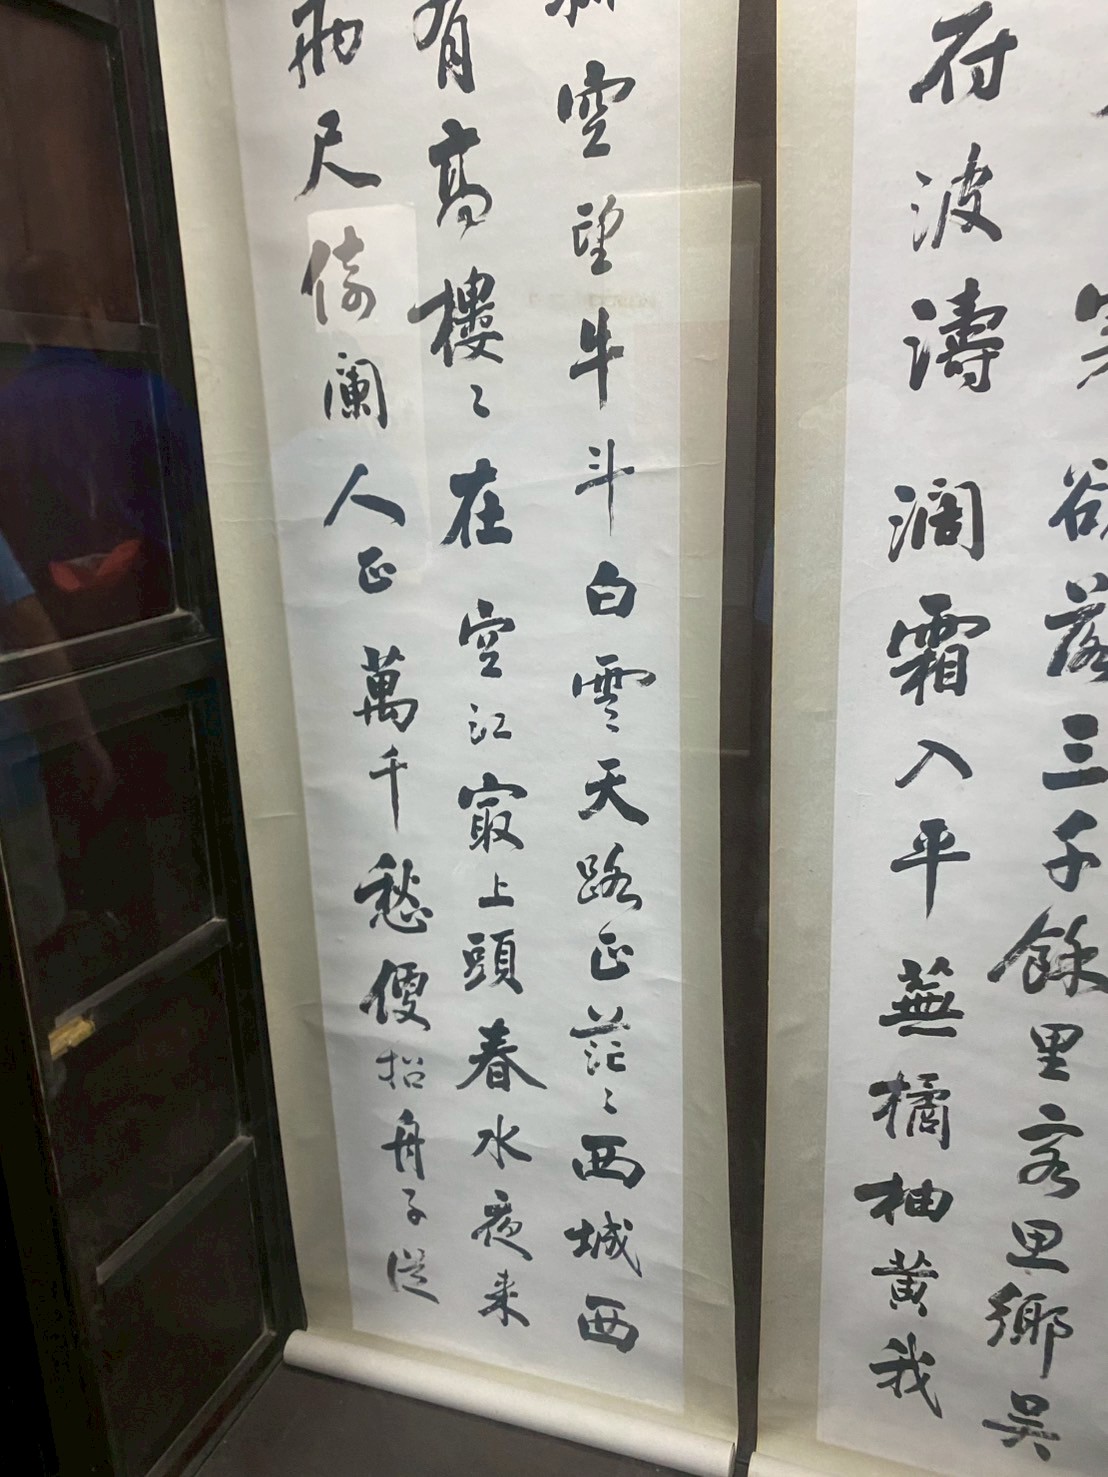 欲落三千餘里客思鄉吳
府波濤濶霜入平蕪橘柚黄我
空望牛斗白雲天路正茫〻西城西
有高樓〻在空江最上頭春水夜来
兩尺倚闌人正萬千愁便招舟子從